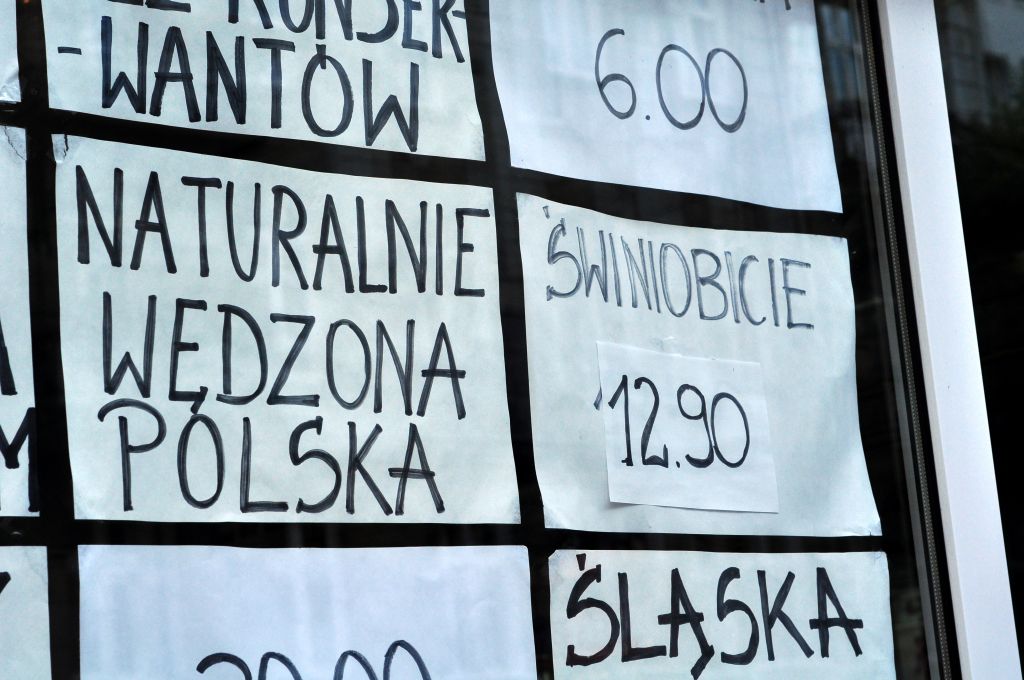 -WANTÓW
6.00
NATURALNIE
WĘDZONA
POLSKA
ŚWINIOBICIE
12.90
ŚLĄSKA